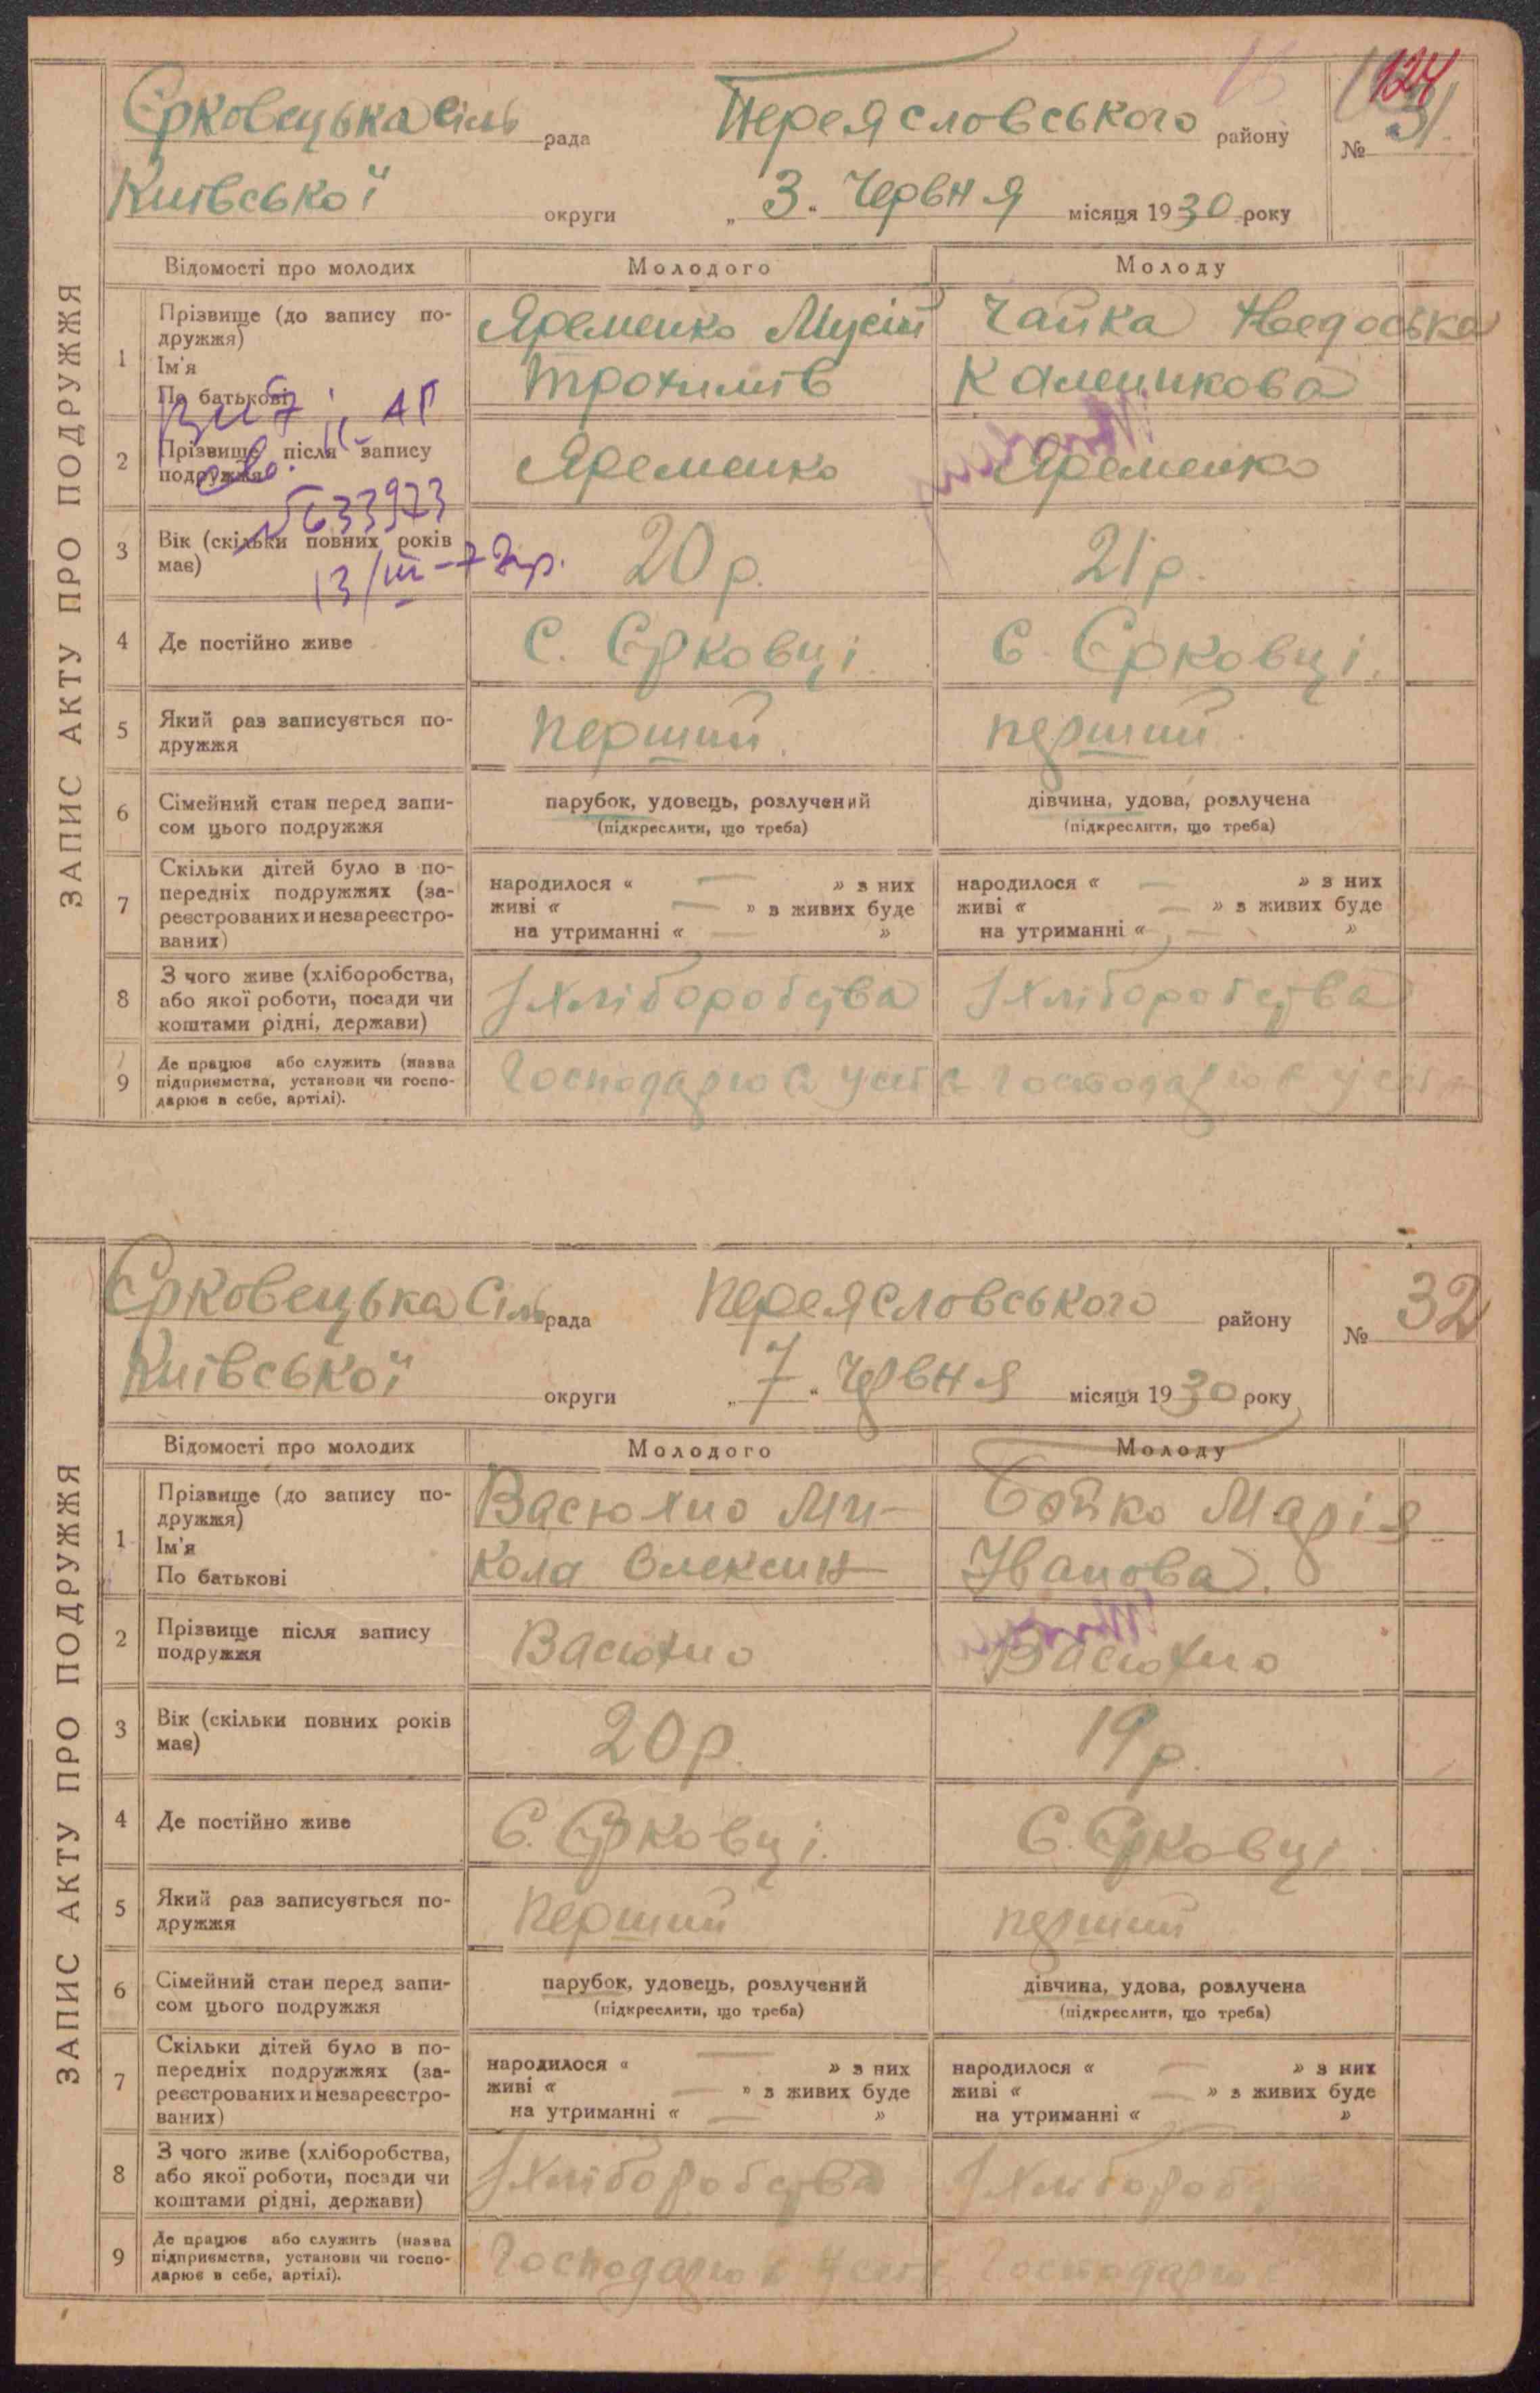 ЗАПИС АКТУ ПРО ПОДРУЖЖЯ
124
Єрковецька сіль рада Переясловського району № 31.
Київської округи „3“ Червня місяця 1930 року
Відомості про молодих Молодого Молоду
1 Прізвище (до запису по-
дружжя)
Ім'я
По батькові
Яременко Мусій
Трохимів
Чайка
Каленикова
2 Прізвище після запису
подружжя
Яременко Яременко
№ 633973
13/III-72р.
3 Вік (скільки повних років
має)
20 р. 21 р.
4 Де постійно живе С. Єрковці. С. Єрковці.
5 Який раз записується по-
дружжя
перший. перший.
6 Сімейний стан перед запи-
сом цього подружжя
парубок, удовець, розлучений
(підкреслити, що треба)
дівчина, удова, розлучена
(підкреслити, що треба)
7 Скільки дітей було в по-
передніх подружжях (за-
реєстрованих и незареєстро-
ваних)
народилося « — » з них
живі « — » з живих буде
на утриманні « — »
народилося « — » з них
живі « — » з живих буде
на утриманні « — »
8 З чого живе (хліборобства,
або якої роботи, посади чи
коштами рідні, держави)
З хліборобства З хліборобства
9 Де працює або служить (назва
підприємства, установи чи госпо-
дарює в себе, артілі).
Господарює у себе Господарює у себе
ЗАПИС АКТУ ПРО ПОДРУЖЖЯ
Єрковецька Сіль рада Переясловського району № 32
Київської округи „7“ Червня місяця 1930 року
Відомості про молодих Молодого Молоду
1 Прізвище (до запису по-
дружжя)
Ім'я
По батькові
Васюхно Ми-
кола Олексин
Бойко Марія
Іванова.
2 Прізвище після запису
подружжя
Васюхно Васюхно
3 Вік (скільки повних років
має)
20 р. 19 р.
4 Де постійно живе С. Єрковці. С. Єрковці
5 Який раз записується по-
дружжя
перший перший
6 Сімейний стан перед запи-
сом цього подружжя
парубок, удовець, розлучений
(підкреслити, що треба)
дівчина, удова, розлучена
(підкреслити, що треба)
7 Скільки дітей було в по-
передніх подружжях (за-
реєстрованих и незареєстро-
ваних)
народилося « — » з них
живі « — » з живих буде
на утриманні « — »
народилося « — » з них
живі « — » з живих буде
на утриманні « — »
8 З чого живе (хліборобства,
або якої роботи, посади чи
коштами рідні, держави)
З хліборобства З хліборобства
9 Де працює або служить (назва
підприємства, установи чи госпо-
дарює в себе, артілі).
Господарює у себе Господарює